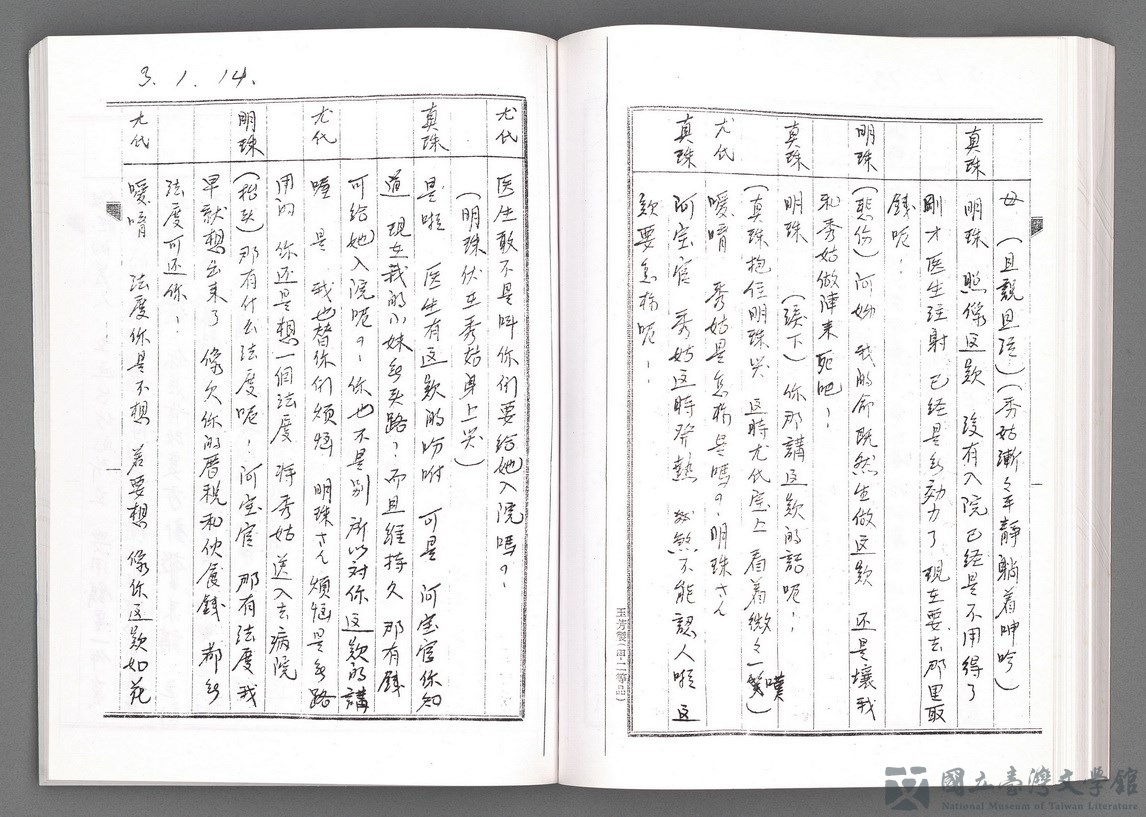 母 (且說且泣)(秀姑漸々年靜躺着呻吟)
真珠 明珠 照像這款 沒有入院已經是不用得了
剛才医生注射 已經是無効力了 現在要去那里取
錢呢！
明珠 (悲伤)阿妯 我的命既然生做這款 还是壞我
和秀姑做陣來死吧！
真珠 明珠 (淚下)你那講這款的話呢！
(真珠抱住明珠哭 這時尤氏室上 看着微々一噗)
尤氏 噯唷 秀姑是怎樣是嗎？明珠さん
真珠 阿宝官 秀姑這時發熱 熱不能認人啦 這
款要怎樣呢！
玉芳製(甲.二等品)
一
3.1.14.
尤氏 医生敢不是叫你们要給她入院嗎？
(明珠伏在秀姑身上哭)
真珠 是啦 医生有這款的吩咐 可是 阿宝官你知
道 現在我的小妹無头路！而且維持久 那有錢
可給她入院呢？你也不是別 所以对你這款的講
尤氏 是 我也替你们煩惱 明珠さん煩惱是無路
用的 你还是想一個法度 將秀姑 送入去病院
明珠 (抬头)那有什么法度呢！阿宝官 那有法度 我
早就想出来了 像欠你的厝稅和伙食錢 都無
法度可还你！
尤氏 噯唷 法度你是不想 若要想 像你這款如花
一
國立臺灣文學館
National Museum of Taiwan Literature